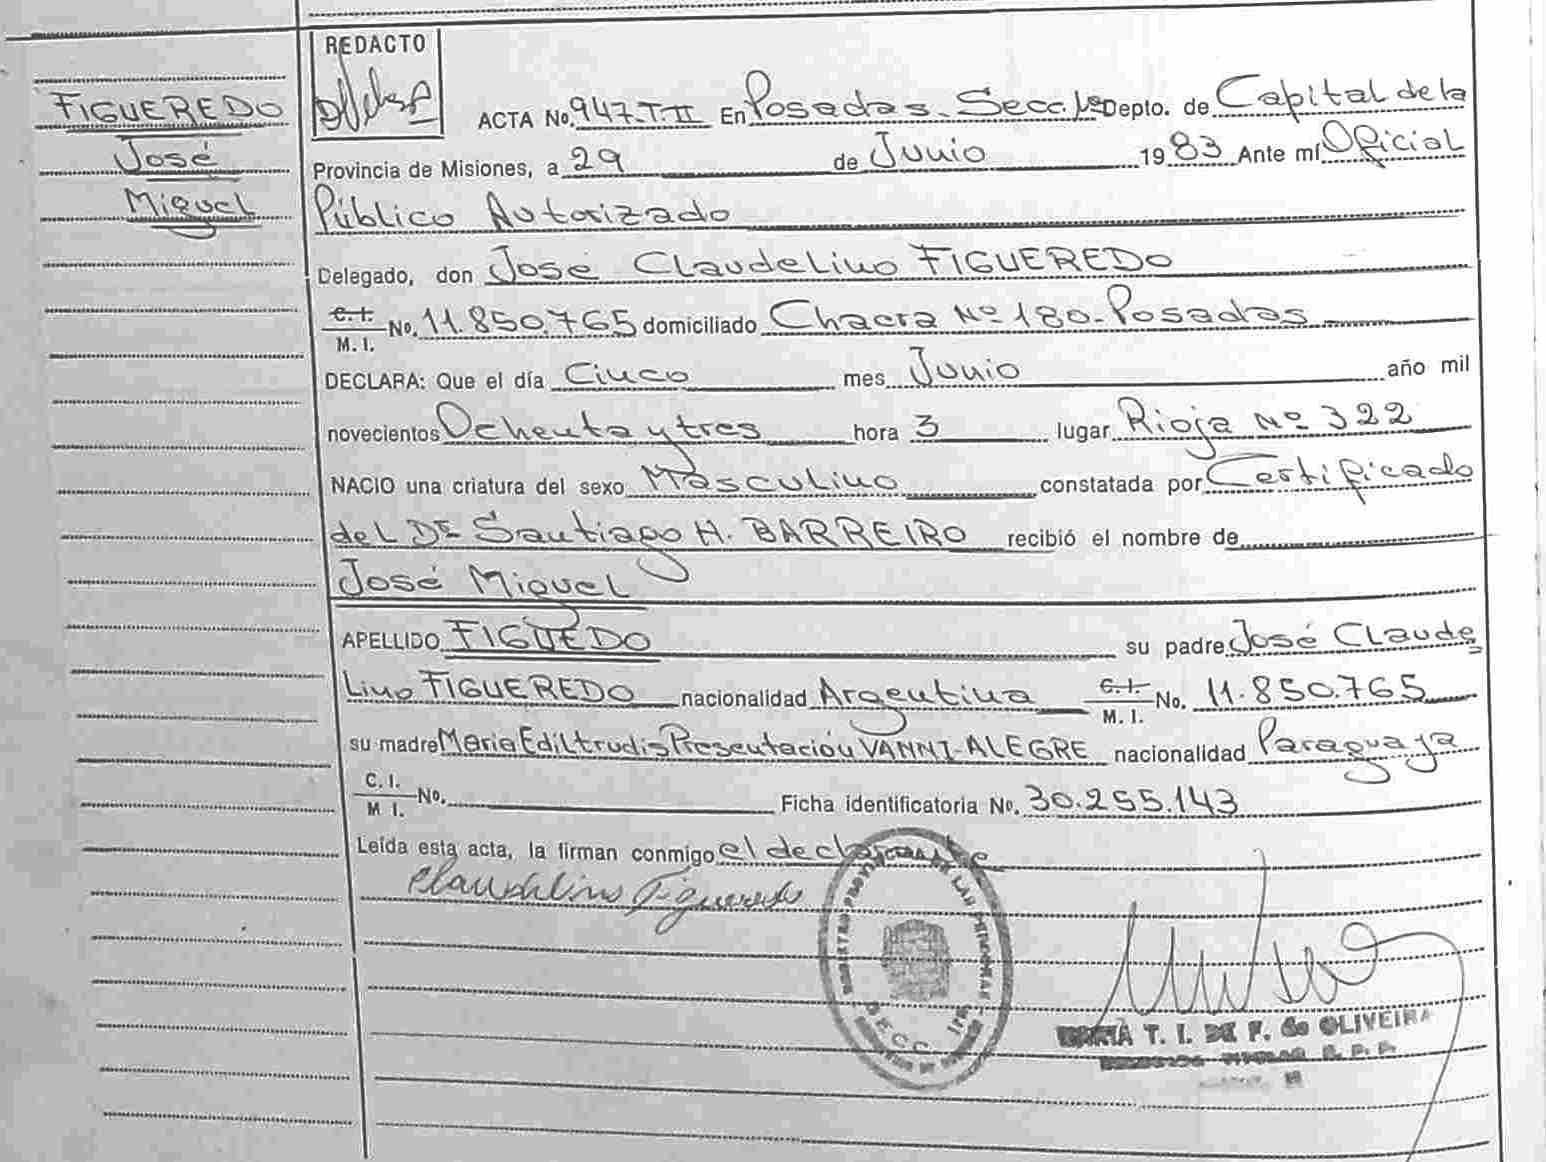 FIGUEREDO
José
Miguel
REDACTO
ACTA No. 947-T-II En Posadas - Secc. 1ª Depto. de Capital de la
Provincia de Misiones, a 29 de Junio 1983 Ante mí Oficial
Público Autorizado
Delegado, don José Claudelino FIGUEREDO
C. I.
M. I. No. 11.850.765 domiciliado Chacra Nº 180 - Posadas
DECLARA: Que el día Cinco mes Junio año mil
novecientos Ochenta y tres hora 3 lugar Rioja Nº 322
NACIO una criatura del sexo Masculino constatada por Certificado
del Dr. Santiago H. BARREIRO recibió el nombre de
José Miguel
APELLIDO FIGUEDO su padre José Claude
lino FIGUEREDO nacionalidad Argentina C. I.
M. I. No. 11.850.765
su madre Maria Ediltrudis Presentación VANNI-ALEGRE nacionalidad Paraguaya
C. I.
M I. No. Ficha identificatoria No. 30.255.143
Leída esta acta, la firman conmigo el declarante
Claudelino Figueredo
DE LAS PERSONAS
SECC. 1ra
MARIA T. I. DE F. de OLIVEIRA